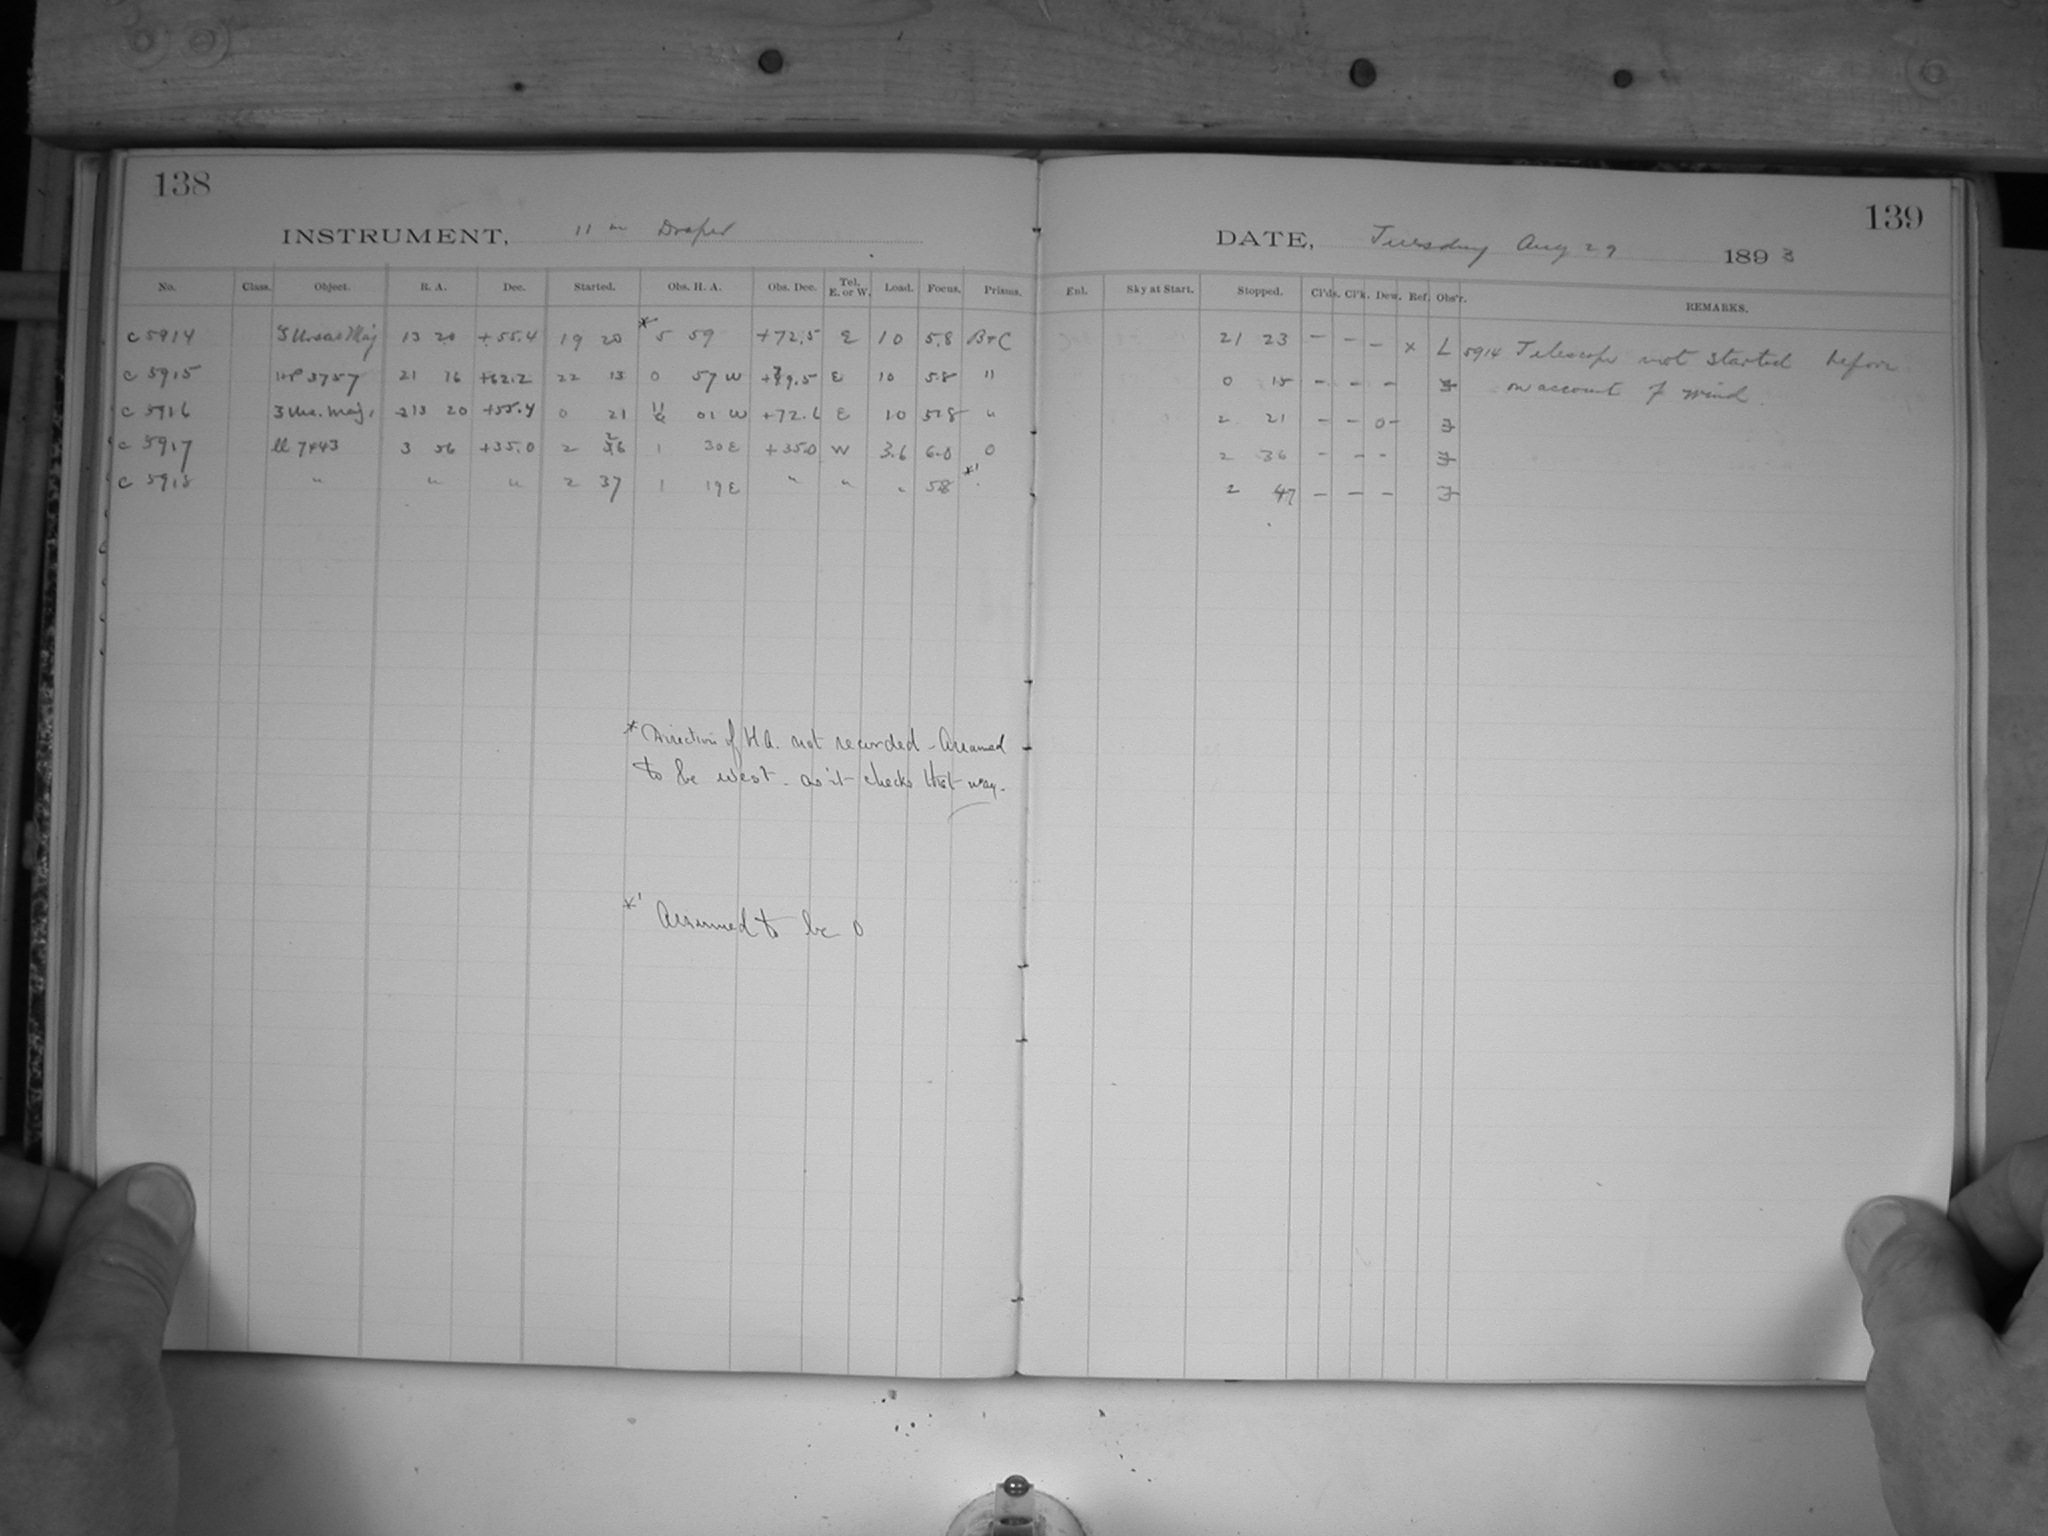 138
139
INSTRUMENT, 11 in Draper
DATE, Tuesday Aug 29 1893
No. Class. Object. R. A. Dec. Started. Obs. H. A. Obs. Dec. Tel. E. or W. Load. Focus. Prisms. Enl. Sky at Start. Stopped. Cl'ds. Cl'k. Dew. Ref. Obs'r. REMARKS.
c 5914 ζ Ursae Maj 13 20 +55.4 19 20 * 5 59 +72.5 E 10 5.8 B+C 21 23 – – – x L 5914 Telescope not started before
c 5915 3757 21 16 +62.2 22 15 0 57 W E 10 5.8 " 0 15 – – – J on account of wind.
c 5916 ζ Urs. Maj. 13 20 +55.4 0 21 01 W +72.6 E 10 5.8 " 2 21 – – 0– J
c 5917 7443 3 56 +35.0 2 1 30 E +35.0 W 3.6 6.0 0 2 36 – – – J
c 5918 " " " 2 37 1 19 E " " " 5.8 *' 2 47 – – – J
* Direction of H.A. not recorded – Assumed
to be west – as it checks that way.
*' Assumed to be 0